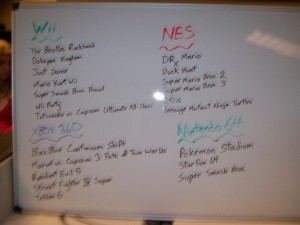 Wii
The Beatles Rockband
Donkey Kong
Just Dance
Mario Kart Wii
Super Smash Bros Brawl
Wii Party
Tatsunoko vs. Capcom Ultimate All-Stars
NES
DR. Mario
Duck Hunt
Super Mario Bros. 2
Super Mario Bros. 3
Tetris
Teenage Mutant Ninja Turtles
XBox 360
BlazBlue Continuum Shift
Marvel vs. Capcom 3 Fate of Two Worlds
Resident Evil 5
Street Fighter IV Super
Tekken 6
Nintendo 64
Pokemon Stadium
Star Fox 64
Super Smash Bros.